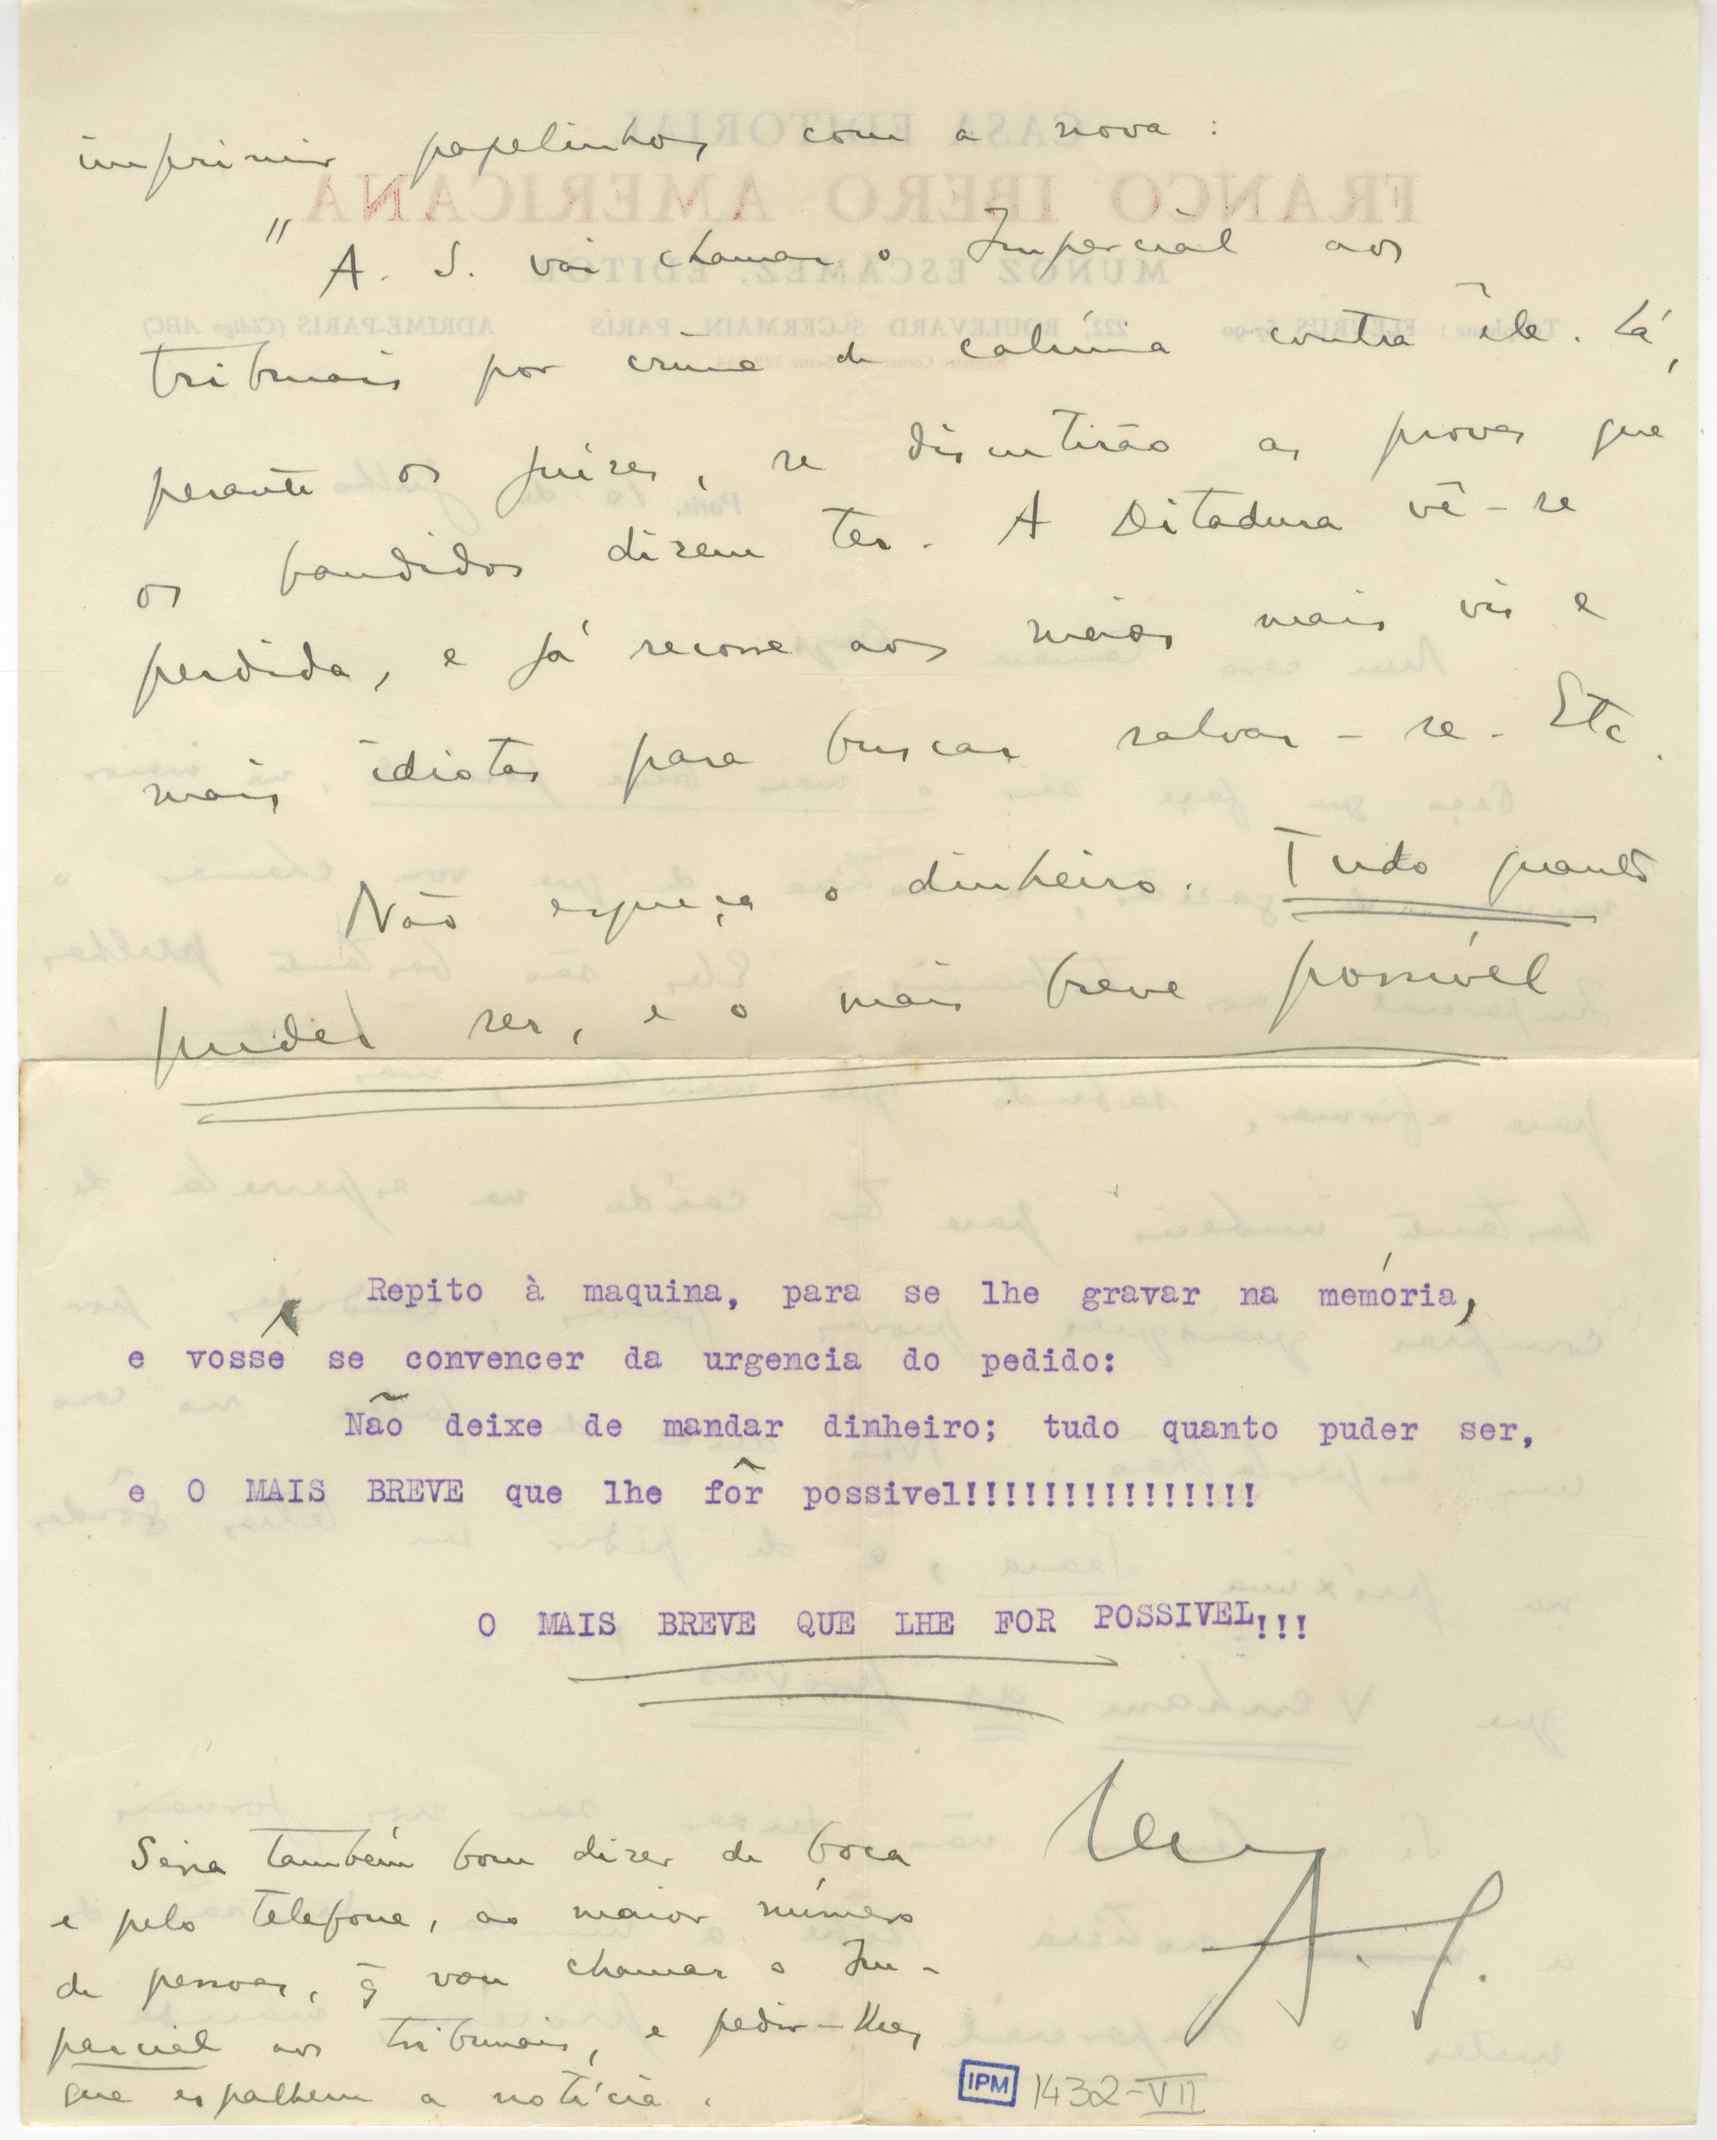 imprimir papelinhos com a nova :
" A. S. vai chamar o Imparcial aos
tribunais por crime de calúnia contra êle. Lá,
perante os juizes, se discutirão as provas que
os bandidos dizem ter. A Ditadura vê-se
perdida, e já recorre aos meios mais vis e
mais idiotas para buscar salvar-se. Etc.
Não esqueça o dinheiro. Tudo quanto
puder ser, e o mais breve possível
Repito à maquina, para se lhe gravar na memória,
e vossê se convencer da urgencia do pedido:
Não deixe de mandar dinheiro; tudo quanto puder ser,
e O MAIS BREVE que lhe fôr possivel!!!!!!!!!!!!!!!
O MAIS BREVE QUE LHE FOR POSSIVEL!!!
A. S.
Seria também bom dizer de boca
e pelo telefone, ao maior número
de pessoas, q̃ vou chamar o Im-
parcial aos tribunais, e pedir-lhes
que espalhem a notícia.
IPM 1432-VII